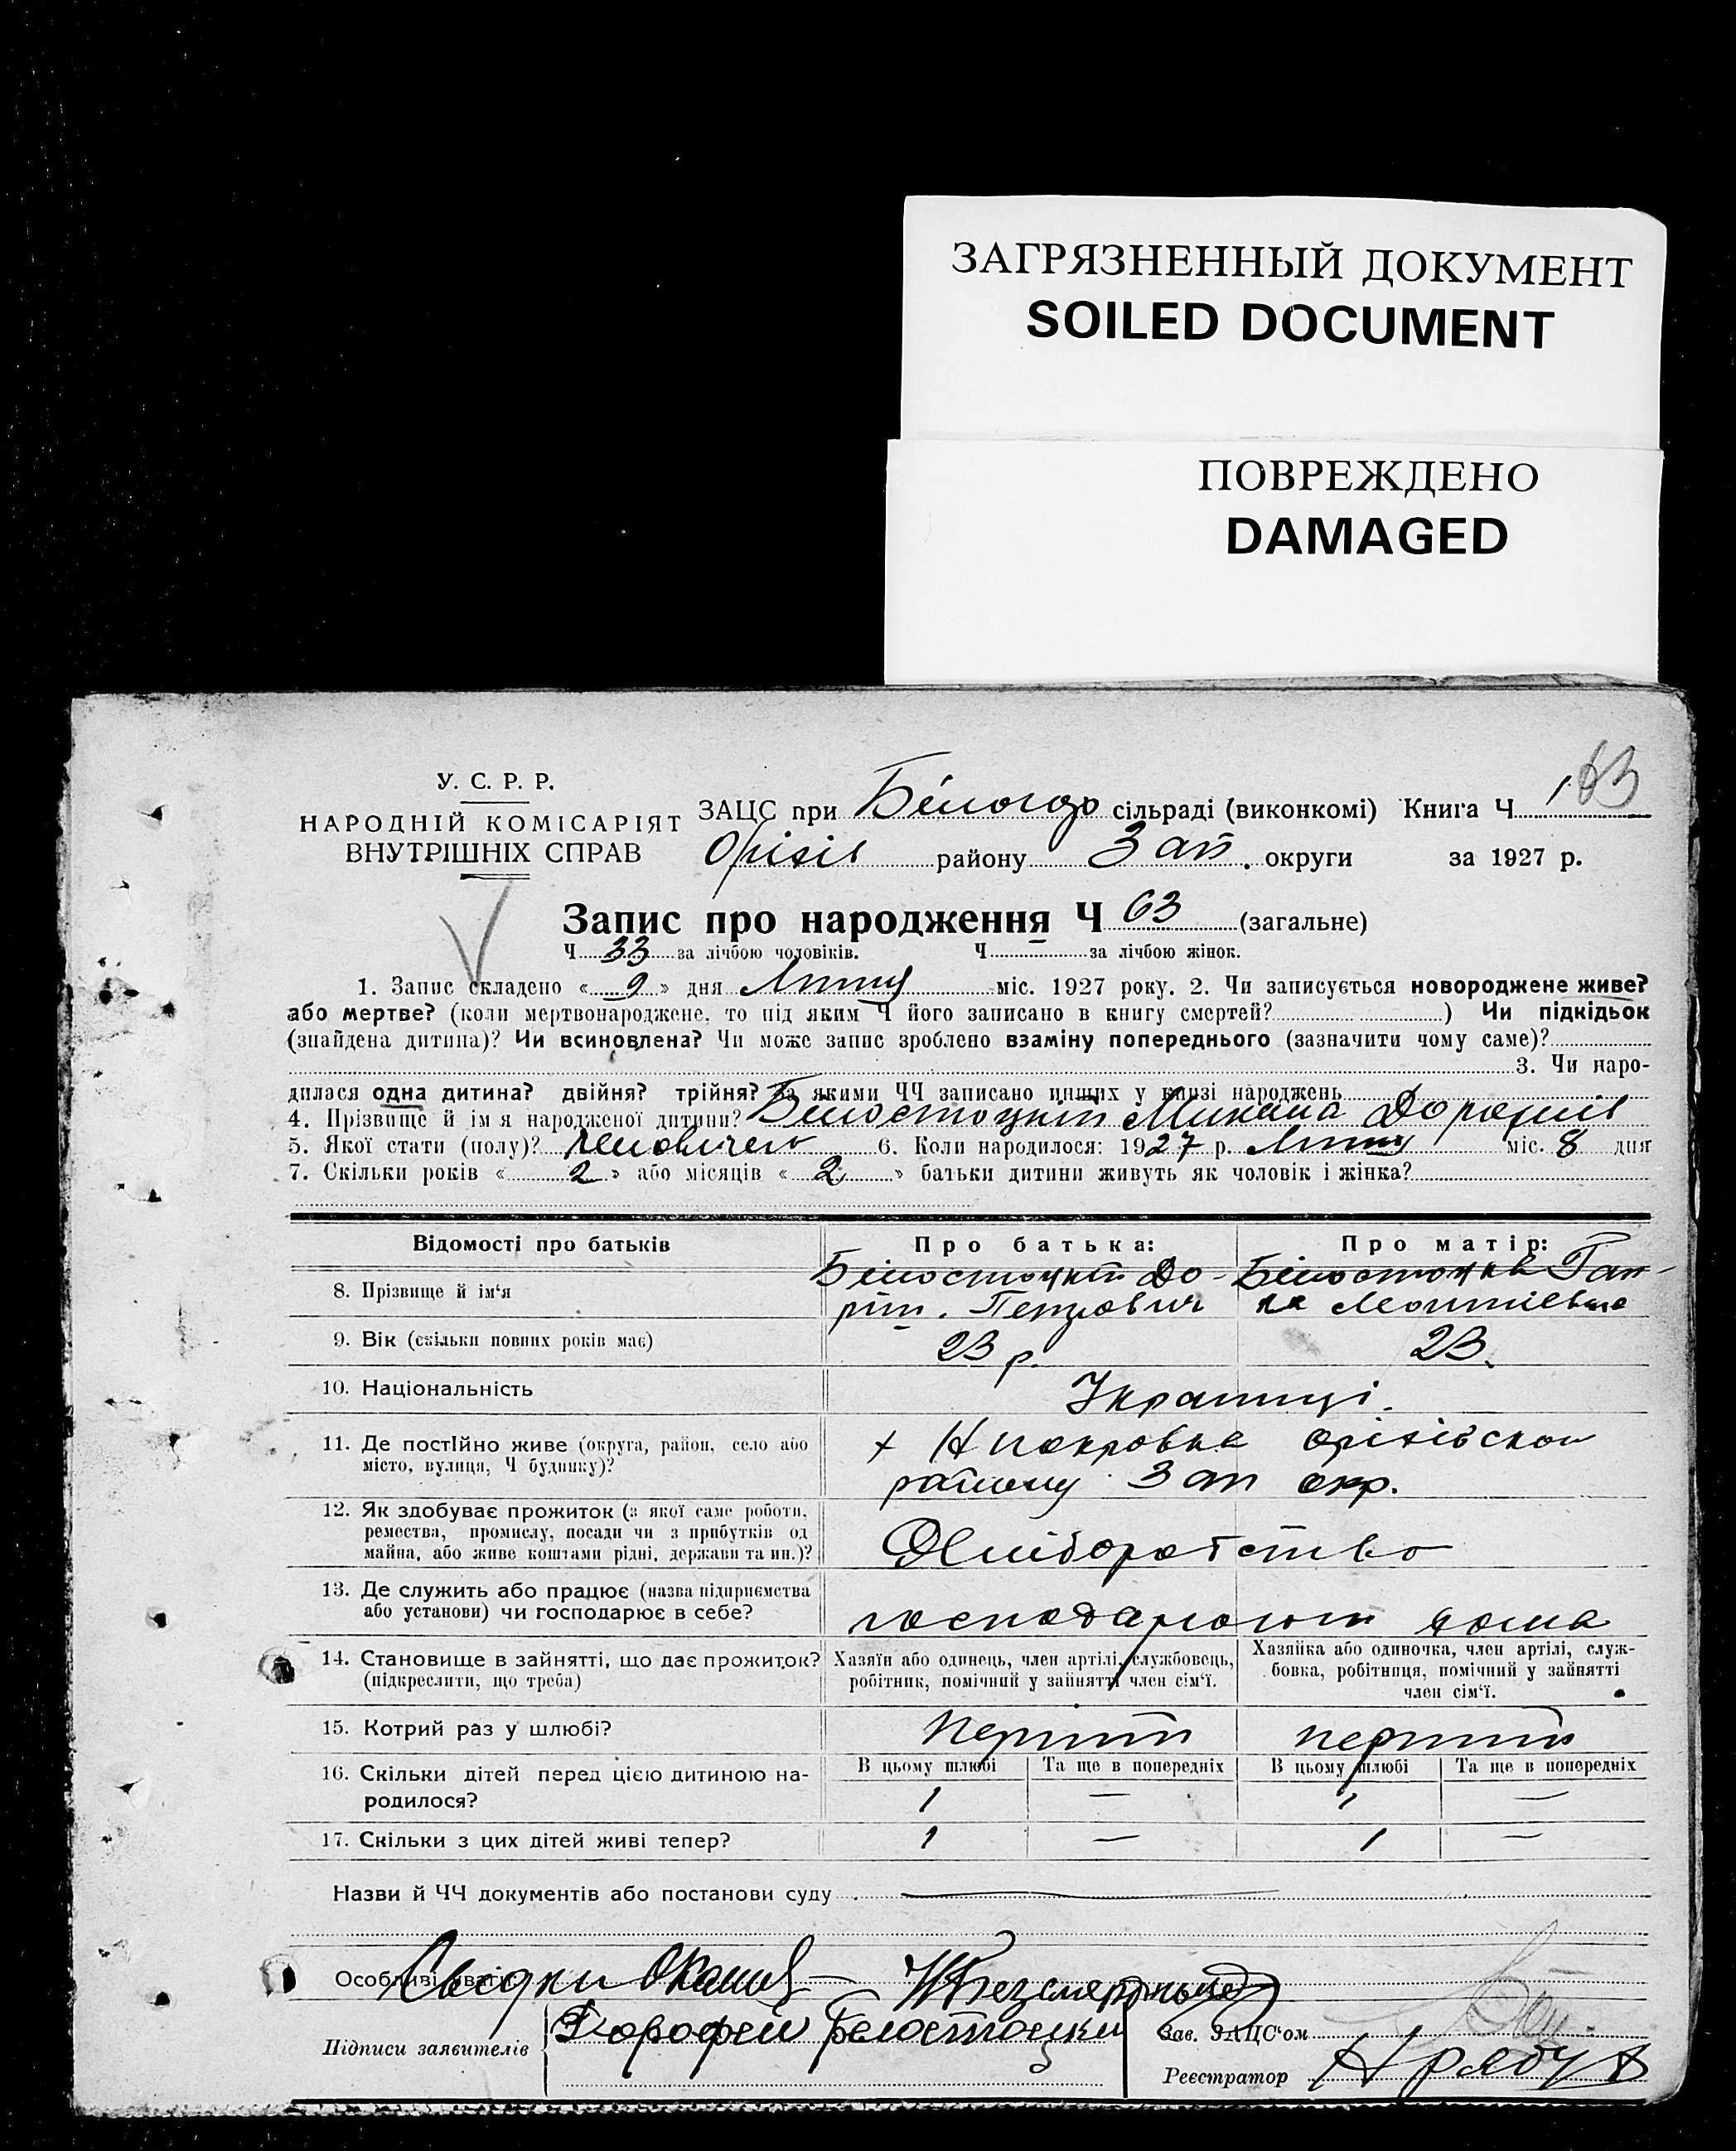 ЗАГРЯЗНЕННЫЙ ДОКУМЕНТ
SOILED DOCUMENT
ПОВРЕЖДЕНО
DAMAGED
63
У. С. Р. Р.
НАРОДНІЙ КОМІСАРІЯТ
ВНУТРІШНІХ СПРАВ
ЗАЦС при сільраді (виконкомі) Книга Ч 1
Оріхів району Зап. округи за 1927 р.
Запис про народження Ч 63 (загальне)
Ч 33 за лічбою чоловіків. Ч за лічбою жінок.
1. Запис складено « 9 » дня Липця міс. 1927 року. 2. Чи записується новороджене живе?
або мертве? (коли мертвонароджене, то під яким Ч його записано в книгу смертей? ) Чи підкідьок
(знайдена дитина)? Чи всиновлена? Чи може запис зроблено взаміну попереднього (зазначити чому саме)?
3. Чи наро-
дилася одна дитина? двійня? трійня? За якими ЧЧ записано инших у книзі народжень
4. Прізвище й ім'я народженої дитини? Білостоцкий Микола
5. Якої стати (полу)? 6. Коли народилося: 1927 р. Липця міс. 8 дня
7. Скільки років « 2 » або місяців « 2 » батьки дитини живуть як чоловік і жінка?
Відомості про батьків Про батька: Про матір:
8. Прізвище й ім'я Білостоцкий До- Білостоцка Ган-
Петрович на
9. Вік (скільки повних років має) 23 р. 23.
10. Національність Українці.
11. Де постійно живе (округа, район, село або
місто, вулиця, Ч будинку)? Покровка Оріхівском
району Зап окр.
12. Як здобуває прожиток (з якої саме роботи,
ремества, промислу, посади чи з прибутків од
майна, або живе коштами рідні, держави та ин.)? Хліборобство
13. Де служить або працює (назва підприємства
або установи) чи господарює в себе? господарюют дома
14. Становище в зайнятті, що дає прожиток?
(підкреслити, що треба)
Хазяїн або одинець, член артілі, службовець,
робітник, помічний у зайнятті член сім'ї.
Хазяйка або одиночка, член артілі, служ-
бовка, робітниця, помічний у зайнятті
член сім'ї.
15. Котрий раз у шлюбі? перший перший
16. Скільки дітей перед цією дитиною на-
родилося?
В цьому шлюбі Та ще в попередніх В цьому шлюбі Та ще в попередніх
1 — 1 —
17. Скільки з цих дітей живі тепер? 1 — 1 —
Назви й ЧЧ документів або постанови суду
Особливі уваги:
Підписи заявителів Дорофей Белостоцкий
Зав. ЗАЦС'ом
Реєстратор